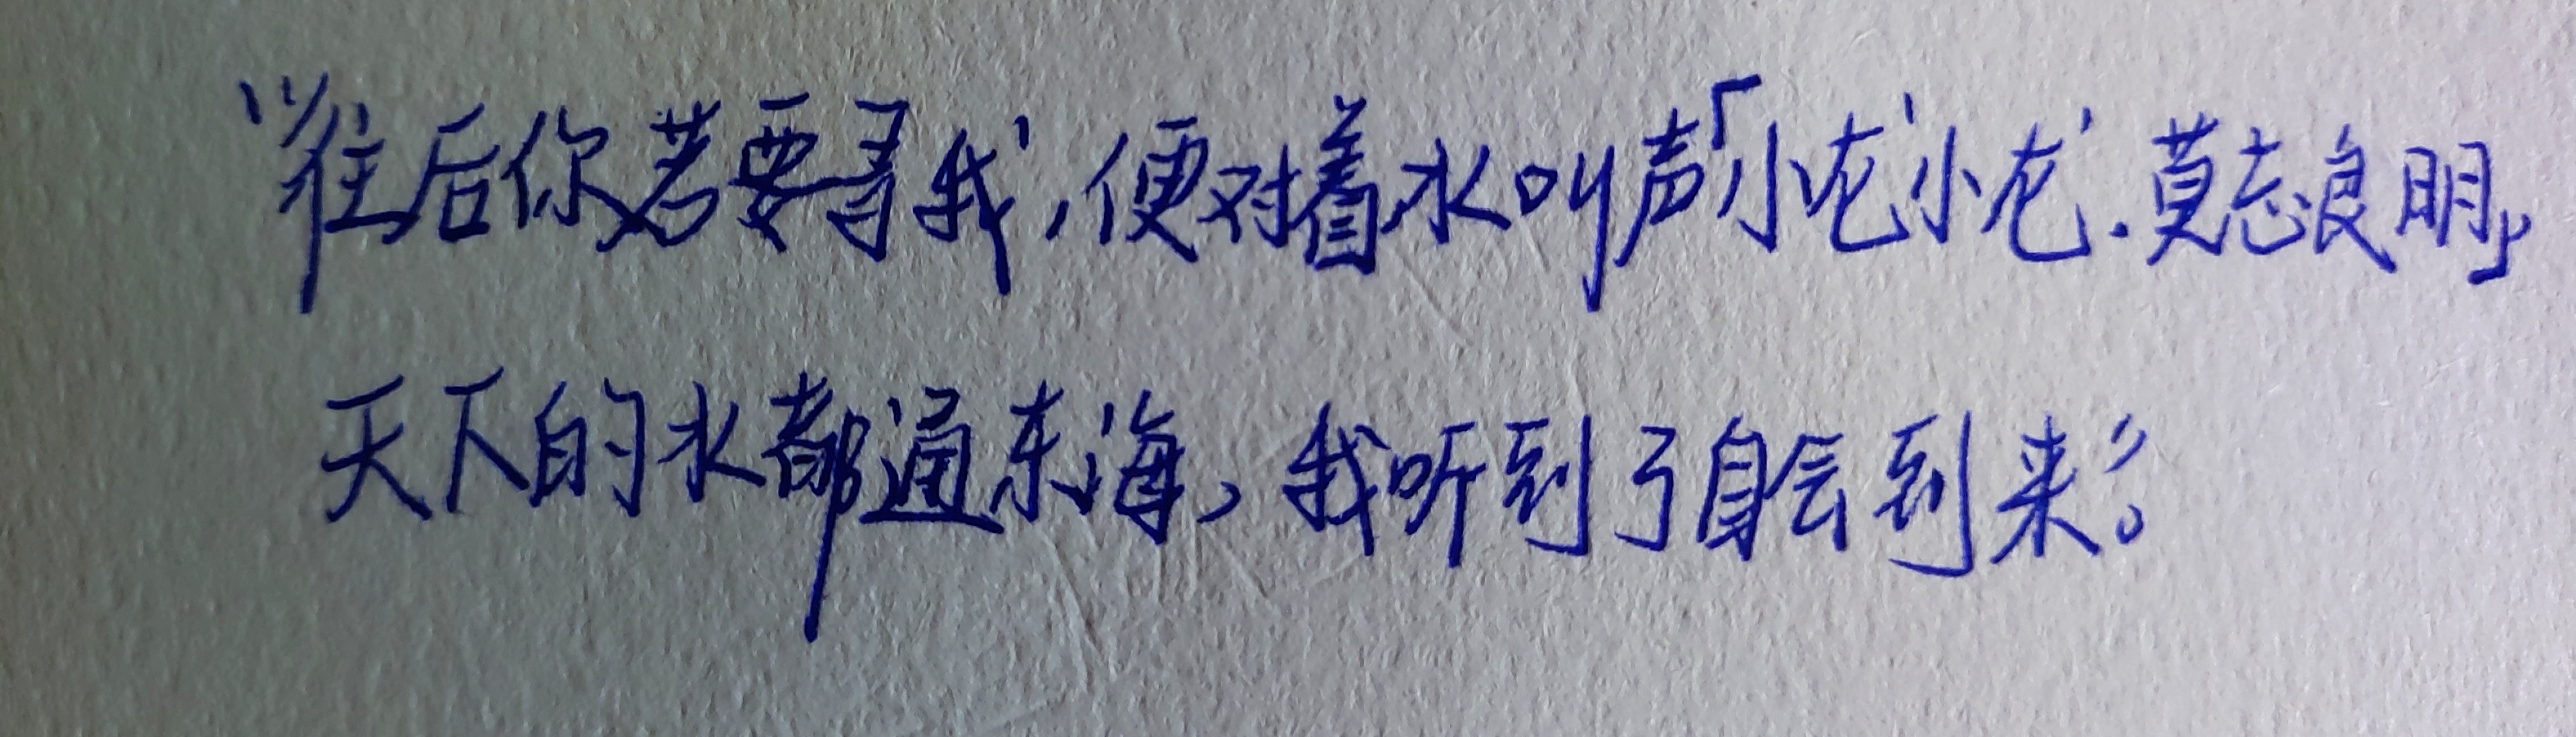 “往后你若要寻我，便对着水叫声「小龙小龙.莫忘良朋」
天下的水都通东海，我听到了自会到来”。